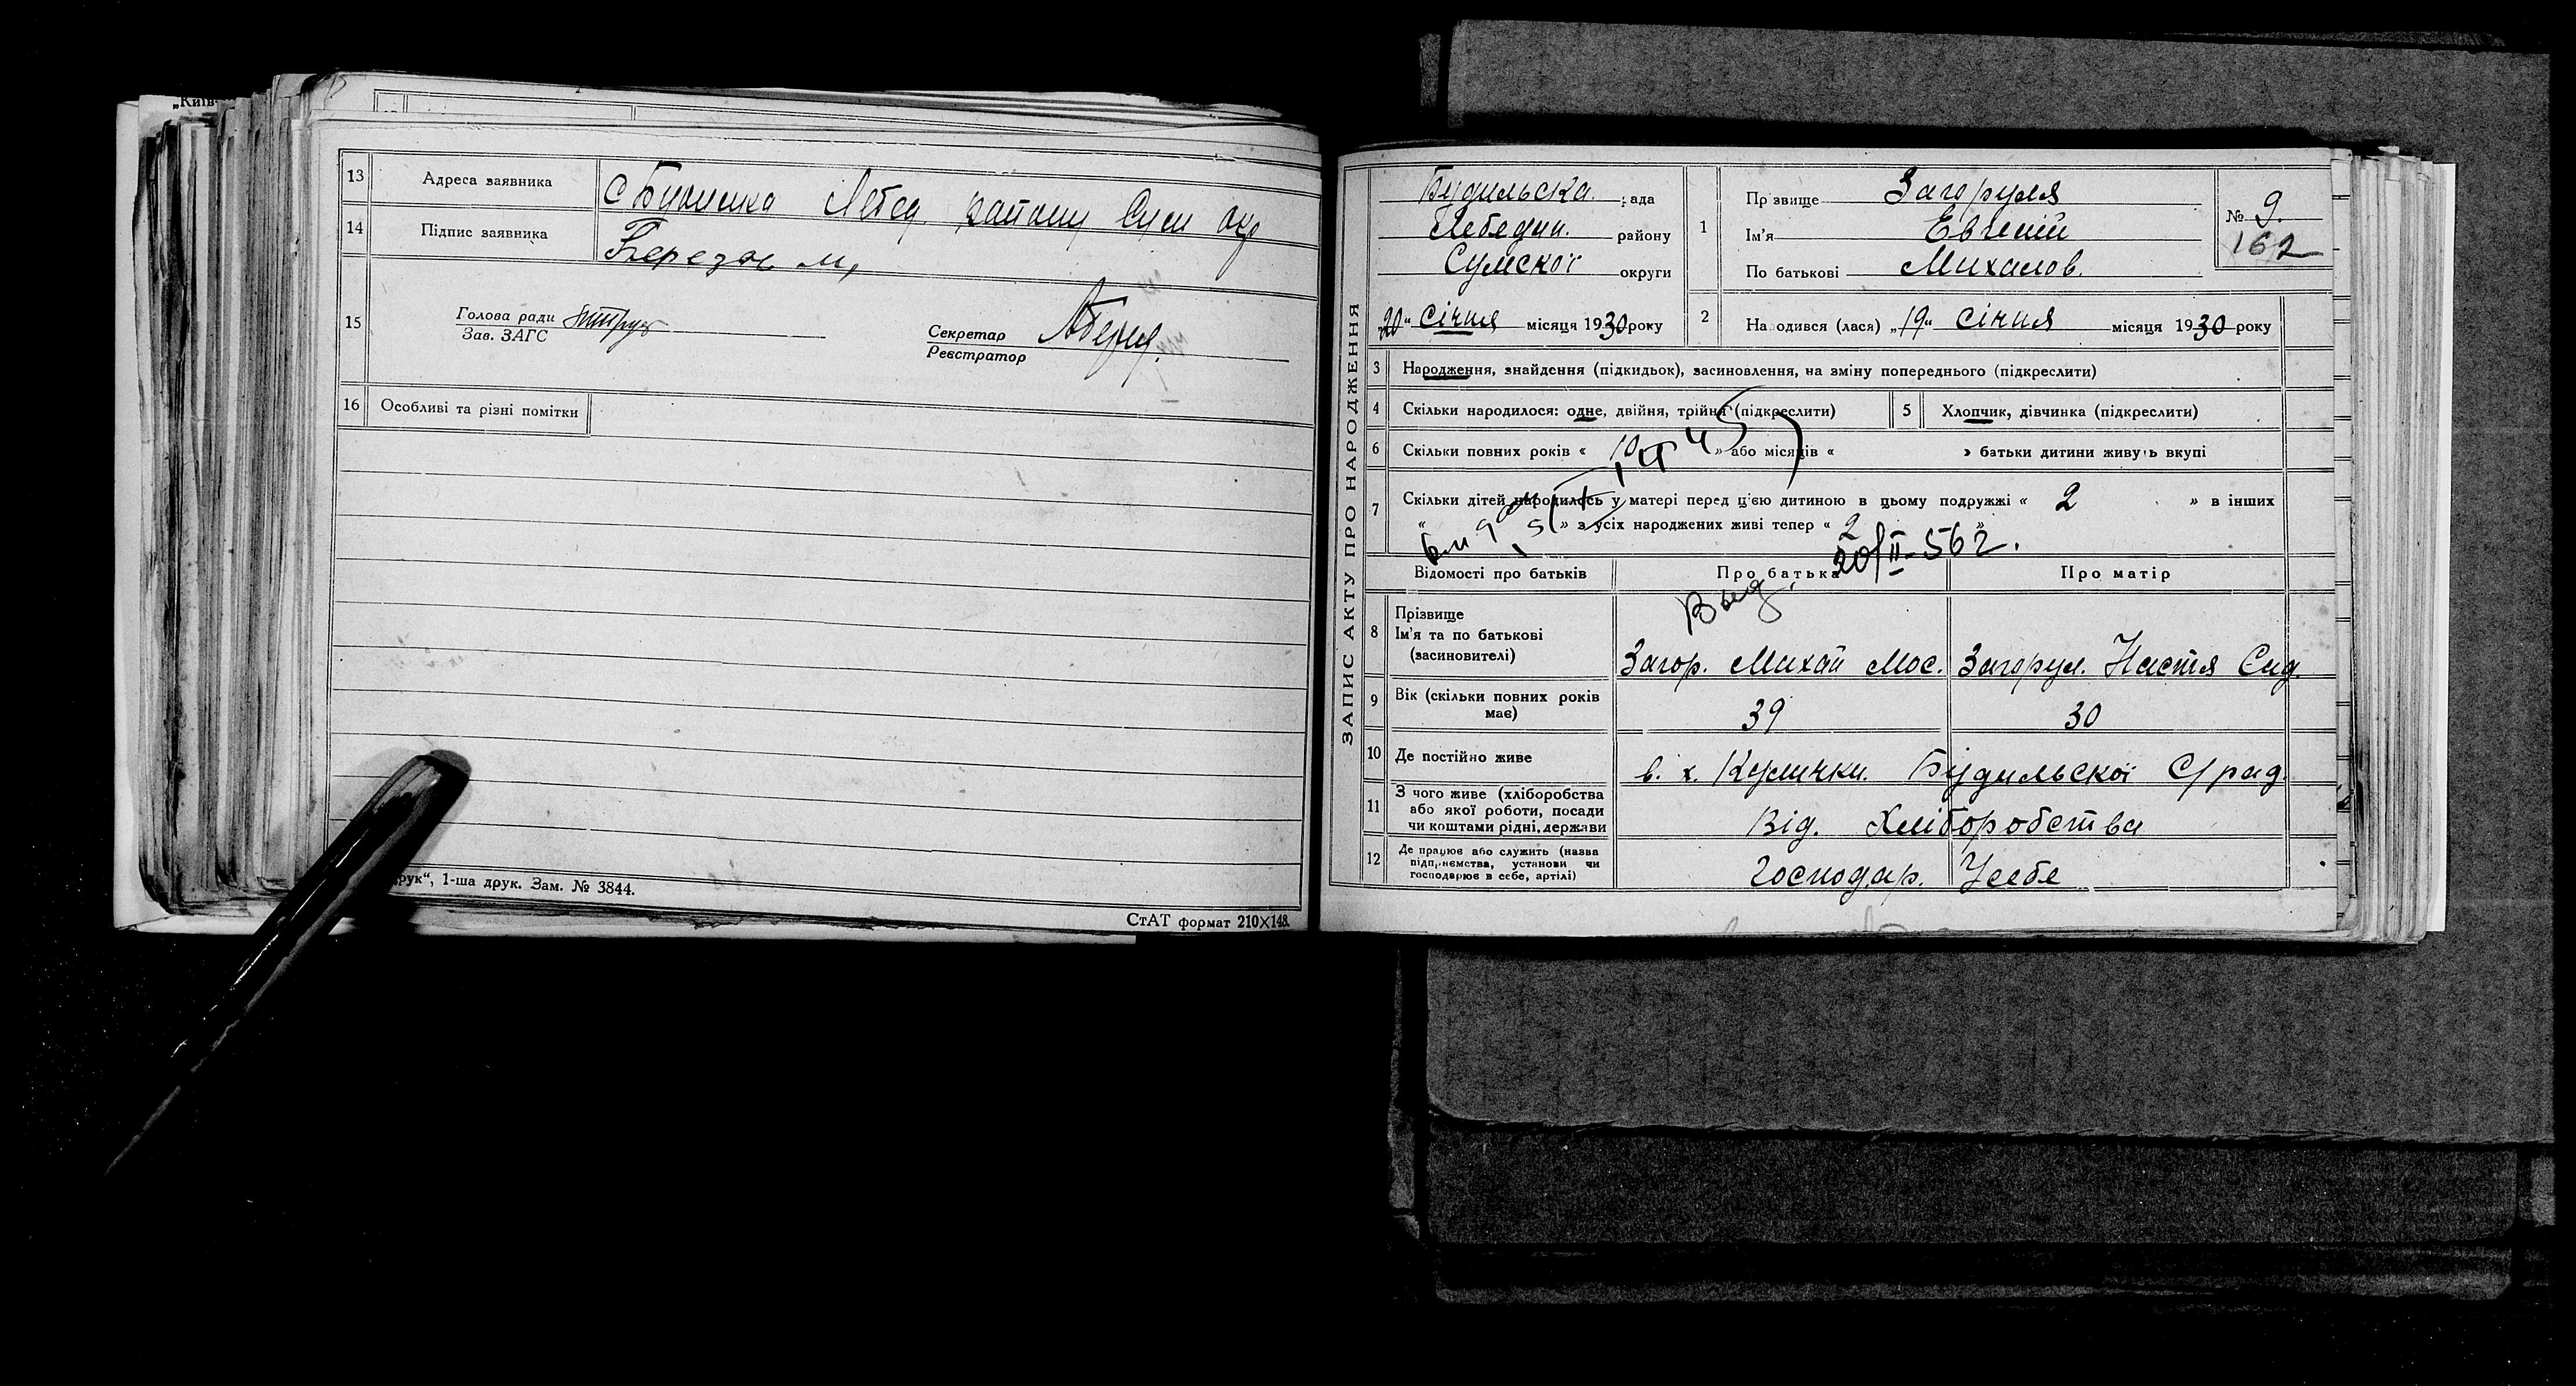 „Київ-
13 Адреса заявника
Лебед. району Сум окр
14 Підпис заявника
15 Голова ради
Зав. ЗАГС
Секретар
Реєстратор
16 Особливі та різні помітки
друк“, 1-ша друк. Зам. № 3844.
СтАТ формат 210×148.
ЗАПИС АКТУ ПРО НАРОДЖЕННЯ
Будильська рада
Лебедин. району
Сумскої округи
„20“ січня місяця 1930 року
1 Прізвище Загоруля
Ім'я Евгений
По батькові Михалов.
№ 9.
162
2 Народився (лася) „19“ січня місяця 1930 року
3 Народження, знайдення (підкидьок), засиновлення, на зміну попереднього (підкреслити)
4 Скільки народилося: одне, двійня, трійня (підкреслити)
5 Хлопчик, дівчинка (підкреслити)
6 Скільки повних років « 10 » або місяців « » батьки дитини живуть вкупі
7 Скільки дітей народилось у матері перед цією дитиною в цьому подружжі « 2 » в інших
« » з усіх народжених живі тепер « 2 »
20/II-56 г.
Выд.
Відомості про батьків Про батька Про матір
8 Прізвище
Ім'я та по батькові
(засиновителі)
Загор. Михай Мос. Загорул. Настя Сид.
9 Вік (скільки повних років
має)
39 30
10 Де постійно живе в. х. Кулички. Будильскої С/рад.
11 З чого живе (хліборобства
або якої роботи, посади
чи коштами рідні, держави
Від. Хліборобства
12 Де працює або служить (назва
підприємства, установи чи
господарює в себе, артілі)
Господар. Усебе